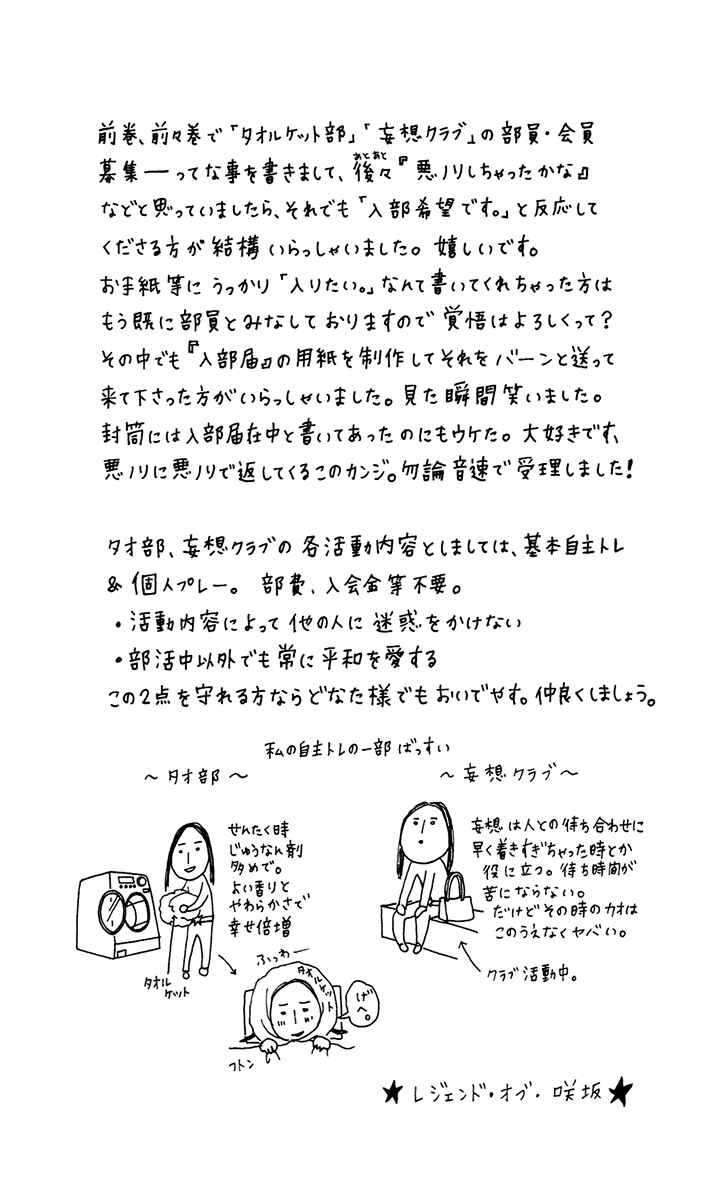 前巻、前々巻で「タオルケット部」「妄想クラブ」の部員・会員
募集――ってな事を書きまして、後々『悪ノリしちゃったかな』
あとあと
などと思っていましたら、それでも「入部希望です。」と反応して
くださる方が結構いらっしゃいました。嬉しいです。
お手紙等にうっかり「入りたい。」なんて書いてくれちゃった方は
もう既に部員とみなしておりますので覚悟はよろしくって?
その中でも『入部届』の用紙を制作してそれをバーンと送って
来て下さった方がいらっしゃいました。見た瞬間笑いました。
封筒には入部届在中と書いてあったのにもウケた。大好きです、
悪ノリに悪ノリで返してくるこのカンジ。勿論音速で受理しました!
タオ部、妄想クラブの各活動内容としましては、基本自主トレ
& 個人プレー。 部費、入会金等不要。
・活動内容によって他の人に迷惑をかけない
・部活中以外でも常に平和を愛する
この2点を守れる方ならどなた様でもおいでやす。仲良くしましょう。
私の自主トレの一部ばっすい
～タオ部～
せんたく時
じゅうなん剤
多めで。
よい香りと
やわらかさで
幸せ倍増
タオル
ケット
ふっわー
タオルケット
げへ。
フトン
～妄想クラブ～
妄想は人との待ち合わせに
早く着きすぎちゃった時とか
役に立つ。待ち時間が
苦にならない。
だけどその時のカオは
このうえなくヤバい。
クラブ活動中。
★レジェンド・オブ・咲坂★